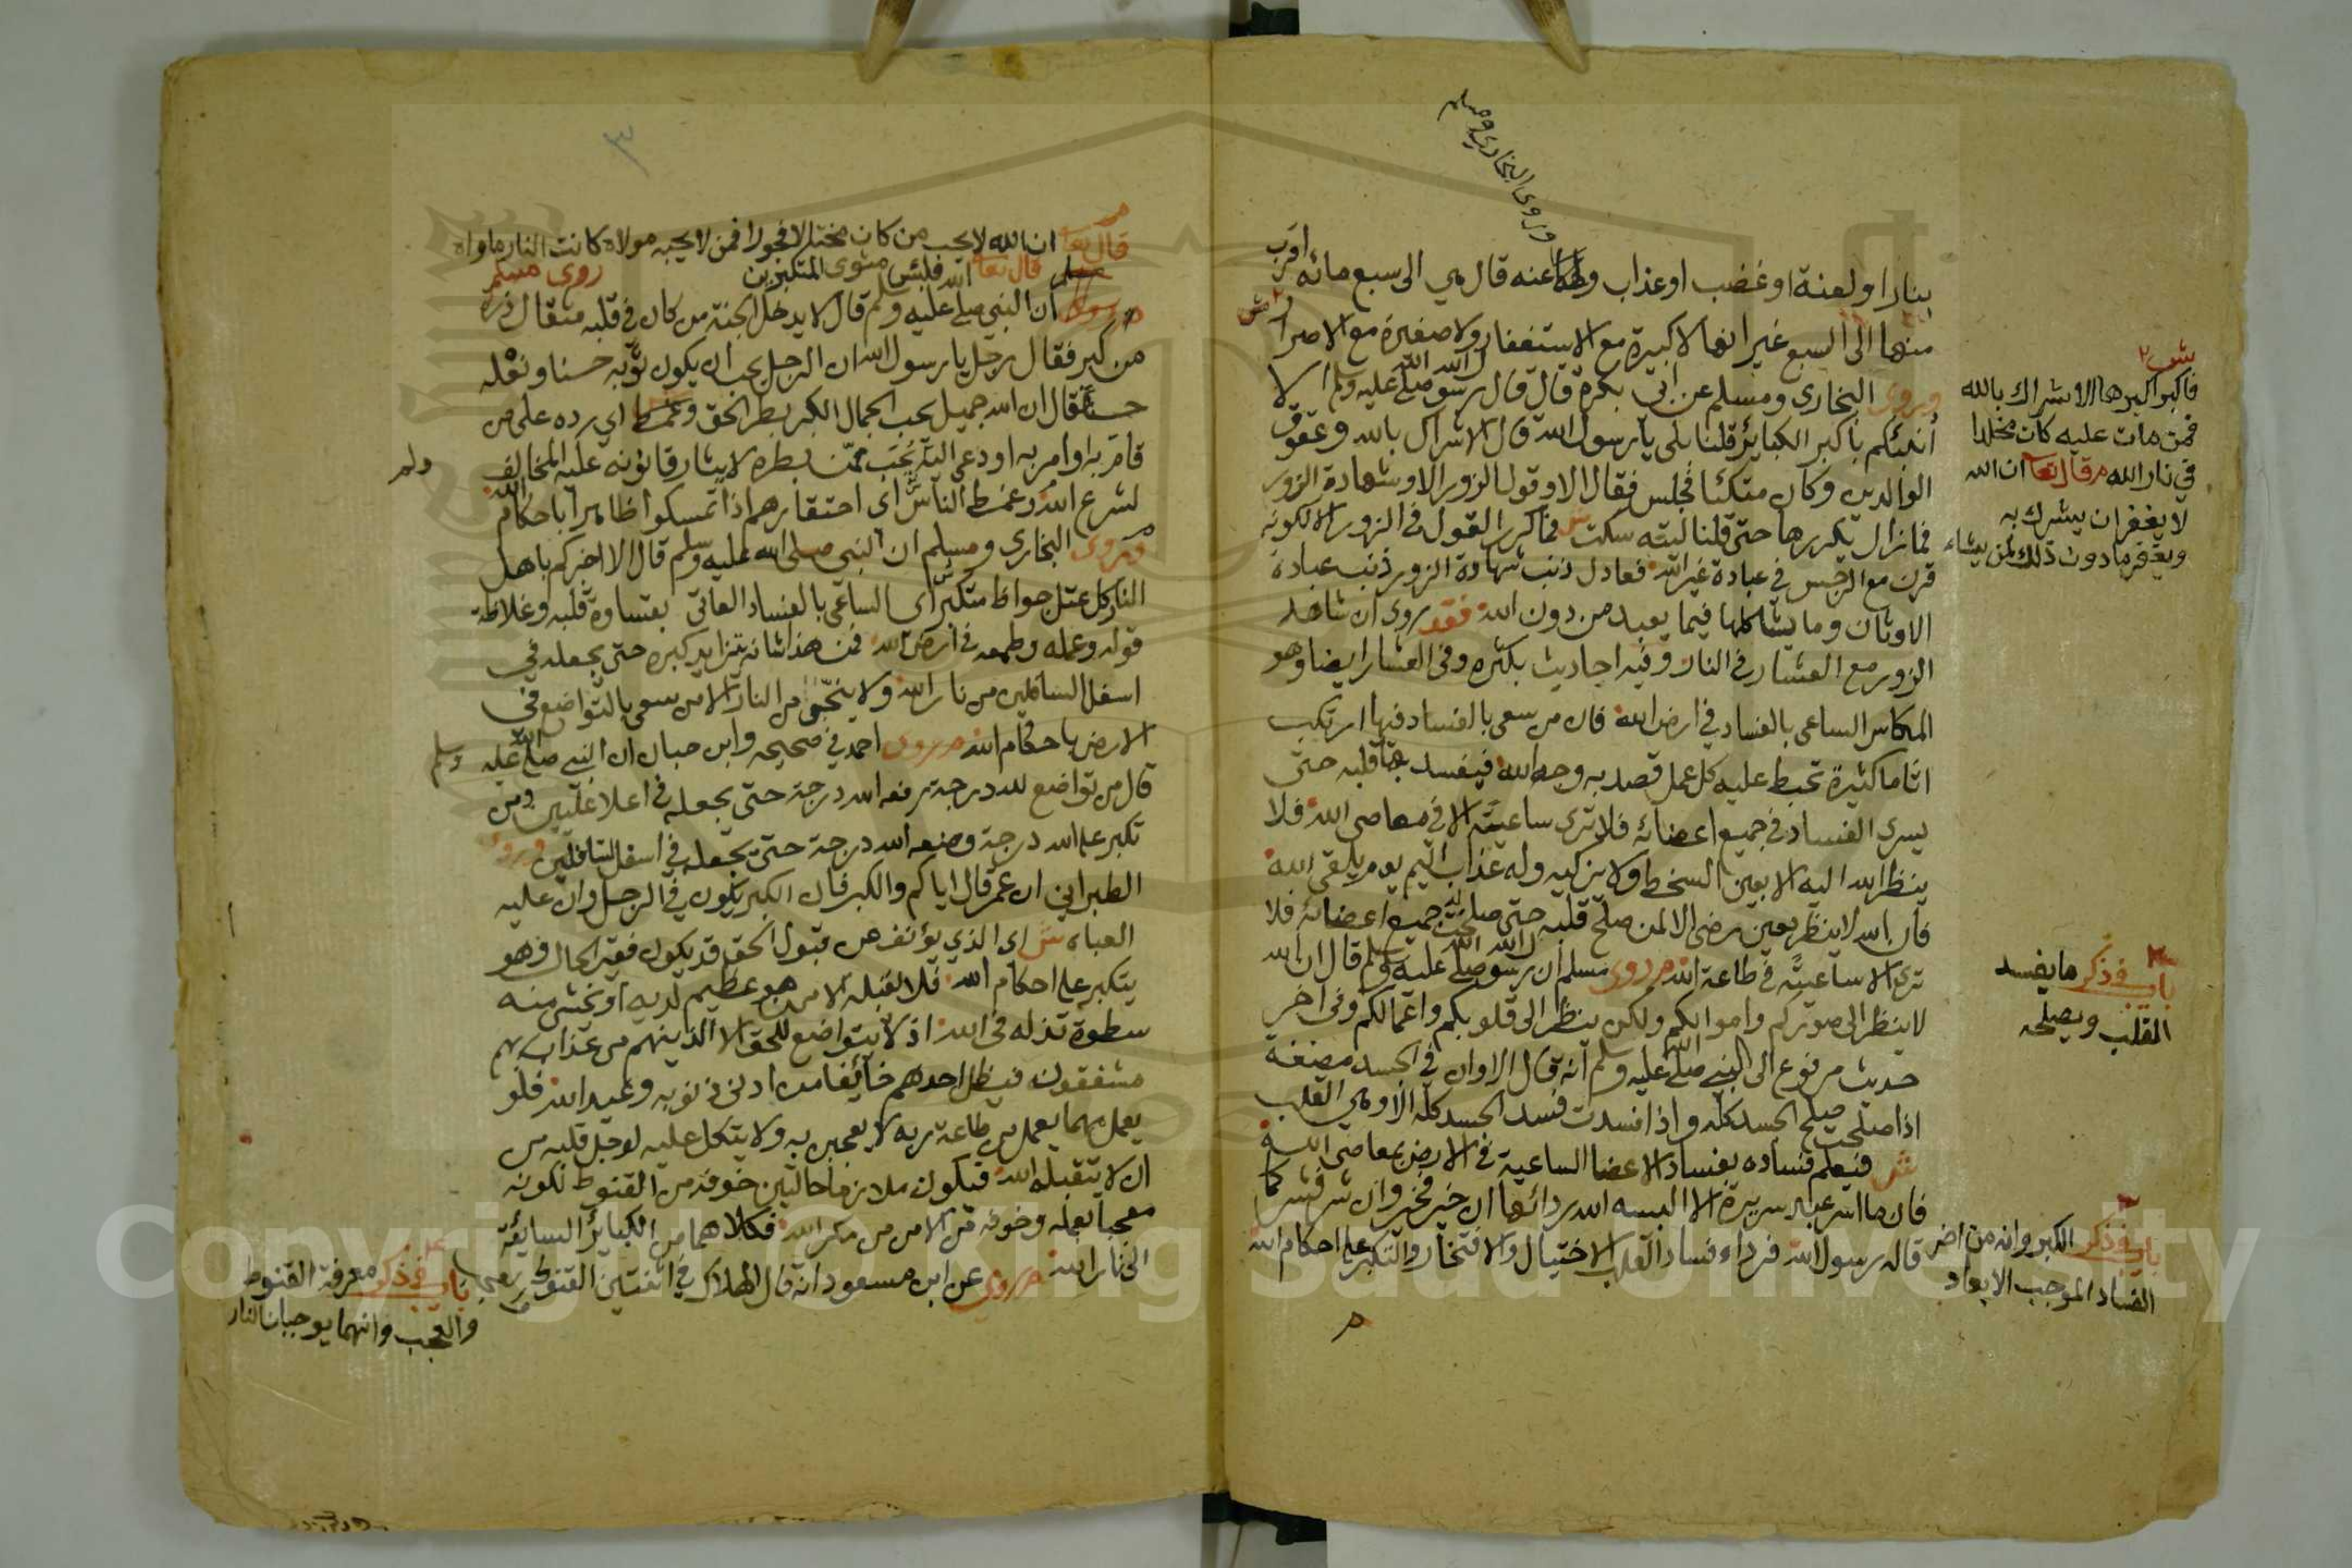 وروى البخاري ومسلم
بنار او لعنة او غضب او عذاب وله عنه قال هي الى سبع مائه اقرب
منها الى السبع غير انها لا كبيرة مع الاستغفار ولا صغيرة مع الاصرار ش
وروى البخاري ومسلم عن ابي بكرة قال قال رسول الله صلى الله عليه وسلم الا
أنبئكم باكبر الكبائر قلنا بلى يا رسول الله قال الاشراك بالله وعقوق
الوالدين وكان متكئا فجلس فقال الا وقول الزور الا وشهادة الزور
فما زال يكررها حتى قلنا ليته سكت ش فما كرر القول في الزور الا لكونه
قرن مع الرجس في عبادة غير الله فعادل ذنب شهادة الزور ذنب عبادة
الاوثان وما يشاكلها فيما يعبد من دون الله فقد روى ان شاهد
الزور مع العشار في النار وفيه احاديث بكثره وفي العشار ايضا وهو
المكاس الساعى بالفساد في ارض الله فان من سعى بالفساد فيها ارتكب
اثاما كثيرة تحبط عليه كل عمل قصد به وجه الله فيفسد بها قلبه حتى
يسرى الفساد في جميع اعضائه فلا ترى ساعيته الا في معاصي الله فلا
ينظر الله اليه الا بعين السخط ولا يزكيه وله عذاب اليم يوم يلقى الله
فان الله لا ينظر بعين رضى الا لمن صلح قلبه حتى صلحت له جميع اعضائه فلا
ترى الا ساعيته في طاعة الله م روى مسلم ان رسول الله صلى الله عليه وسلم قال ان الله
لا ينظر الى صوركم واموالكم ولكن ينظر الى قلوبكم واعمالكم وفي اخر
حديث مرفوع الى النبي صلى الله عليه وسلم انه قال الا وان في الجسد مضغة
اذا صلحت صلح الجسد كله واذا فسدت فسد الجسد كله الا وهي القلب
ش فيعلم فساده بفساد الاعضا الساعية في الارض بمعاصي الله
فان ما اسر عبد سريرة الا البسه الله ردائها ان خير فخير وان شر فشر كما
قاله رسول الله فرداء فساد القلب الاختيال والافتخار والتكبر على احكام الله
شعب ٢
فاكبر اكبرها الاشراك بالله
فمن مات عليه كان مخلدا
في نار الله م قال تعا ان الله
لا يغفر ان يشرك به
ويغفر ما دون ذلك لمن يشاء
باب في ذكر ما يفسد
القلب ويصلحه
باب في ذكر الكبر وانه من اضر
الفساد الموجب الابعاد
٣
قال تعا ان الله لا يحب من كان مختالا فخورا فمن لا يحبه مولاه كانت النار ماواه
قال تعا فلبئس مثوى المتكبرين روى مسلم
ان النبي صلى الله عليه وسلم قال لا يدخل الجنة من كان في قلبه مثقال ذرة
من كبر فقال رجل يا رسول الله ان الرجل يحب ان يكون ثوبه حسنا ونعله
حسنا فقال ان الله جميل يحب الجمال الكبر بطر الحق وغمط اي رده على من
قام به او امر به او دعى اليه
لشرع الله وغمط الناس اى احتقارهم اذا تمسكوا ظاهرا باحكام الله
م وروى البخاري ومسلم ان النبي صلى الله عليه وسلم قال الا اخبركم باهل
النار كل عتل جواظ متكبر اى الساعى بالفساد العاتى بقساوة قلبه وغلاظة
قوله وعمله وطمعه في ارض الله فمن هذا شانه تزايد كبره حتى يجعله في
اسفل السافلين من نار الله ولا ينجوا من النار الا من سعى بالتواضع في
الارض باحكام الله م روى احمد في صحيحه وابن حبان ان النبي صلى الله عليه وسلم
قال من تواضع لله درجة يرفعه الله درجة حتى يجعله في اعلا عليين ومن
تكبر على الله درجة وضعه الله درجة حتى يجعله في اسفل السافلين وروى
الطبراني ان عمر قال اياكم والكبر فان الكبر يكون في الرجل وان عليه
العباه ش اى الذي يؤنف عن قبول الحق قد يكون فقير الحال فهو
يتكبر على احكام الله فلا يقبله الا من هو عظيم لديه او يخشى منه
سطوة تذله في الله اذ لا يتواضع للحق الا الذينهم من عذاب ربهم
مشفقون فيظل احدهم خائفا من ادنى ذنوبه وعيد الله فلو
يعمل مهما يعمل من طاعة ربه لا يعجبن به ولا يتكل عليه لوجل قلبه من
ان لا يتقبله الله فيكون ملازما حالتين خوفه من القنوط لكونه
معجبا بعمله وخوفه من الامن من مكر الله فكلاهما من الكبائر السايقة
الى نار الله م روى عن ابن مسعود انه قال الهلاك في اثنتين القنوط
باب في ذكر معرفة القنوط
والعجب وانهما يوجبان النار